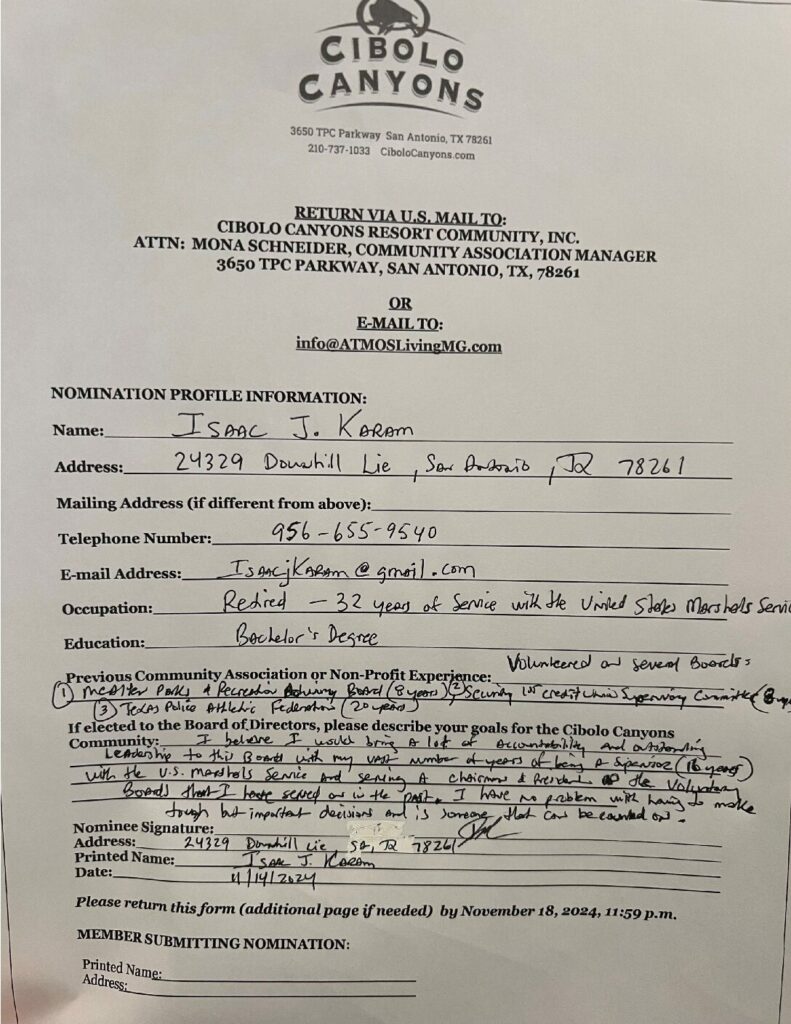 CIBOLO
CANYONS
3650 TPC Parkway San Antonio, TX 78261
210-737-1033 CiboloCanyons.com
RETURN VIA U.S. MAIL TO:
CIBOLO CANYONS RESORT COMMUNITY, INC.
ATTN: MONA SCHNEIDER, COMMUNITY ASSOCIATION MANAGER
3650 TPC PARKWAY, SAN ANTONIO, TX, 78261
OR
E-MAIL TO:
info@ATMOSLivingMG.com
NOMINATION PROFILE INFORMATION:
Name: ISAAC J. KARAM
Address: 24329 Downhill Lie, San Antonio, TX 78261
Mailing Address (if different from above):
Telephone Number: 956-655-9540
E-mail Address: IsaacjKaram@gmail.com
Occupation: Retired - 32 years of Service with the United States Marshals Servi
Education: Bachelor's Degree
Previous Community Association or Non-Profit Experience: Volunteered on several Boards:
① McAllen Parks & Recreation Advisory Board (8 years) ② Security 1st Credit Union Supervisory Committee (8
③ Texas Police Athletic Federation (20 years)
If elected to the Board of Directors, please describe your goals for the Cibolo Canyons
Community: I believe I would bring a lot of accountability and outstanding
Leadership to this Board with my vast number of years of being a Supervisor (16 years)
with the U.S. Marshals Service and serving a Chairman & President of the Voluntary
Boards that I have served on in the past. I have no problem with having to make
tough but important decisions and is someone that can be counted on.
Nominee Signature:
Address: 24329 Downhill Lie, SA, TX 78261
Printed Name: Isaac J. Karam
Date: 11/14/2024
Please return this form (additional page if needed) by November 18, 2024, 11:59 p.m.
MEMBER SUBMITTING NOMINATION:
Printed Name:
Address: